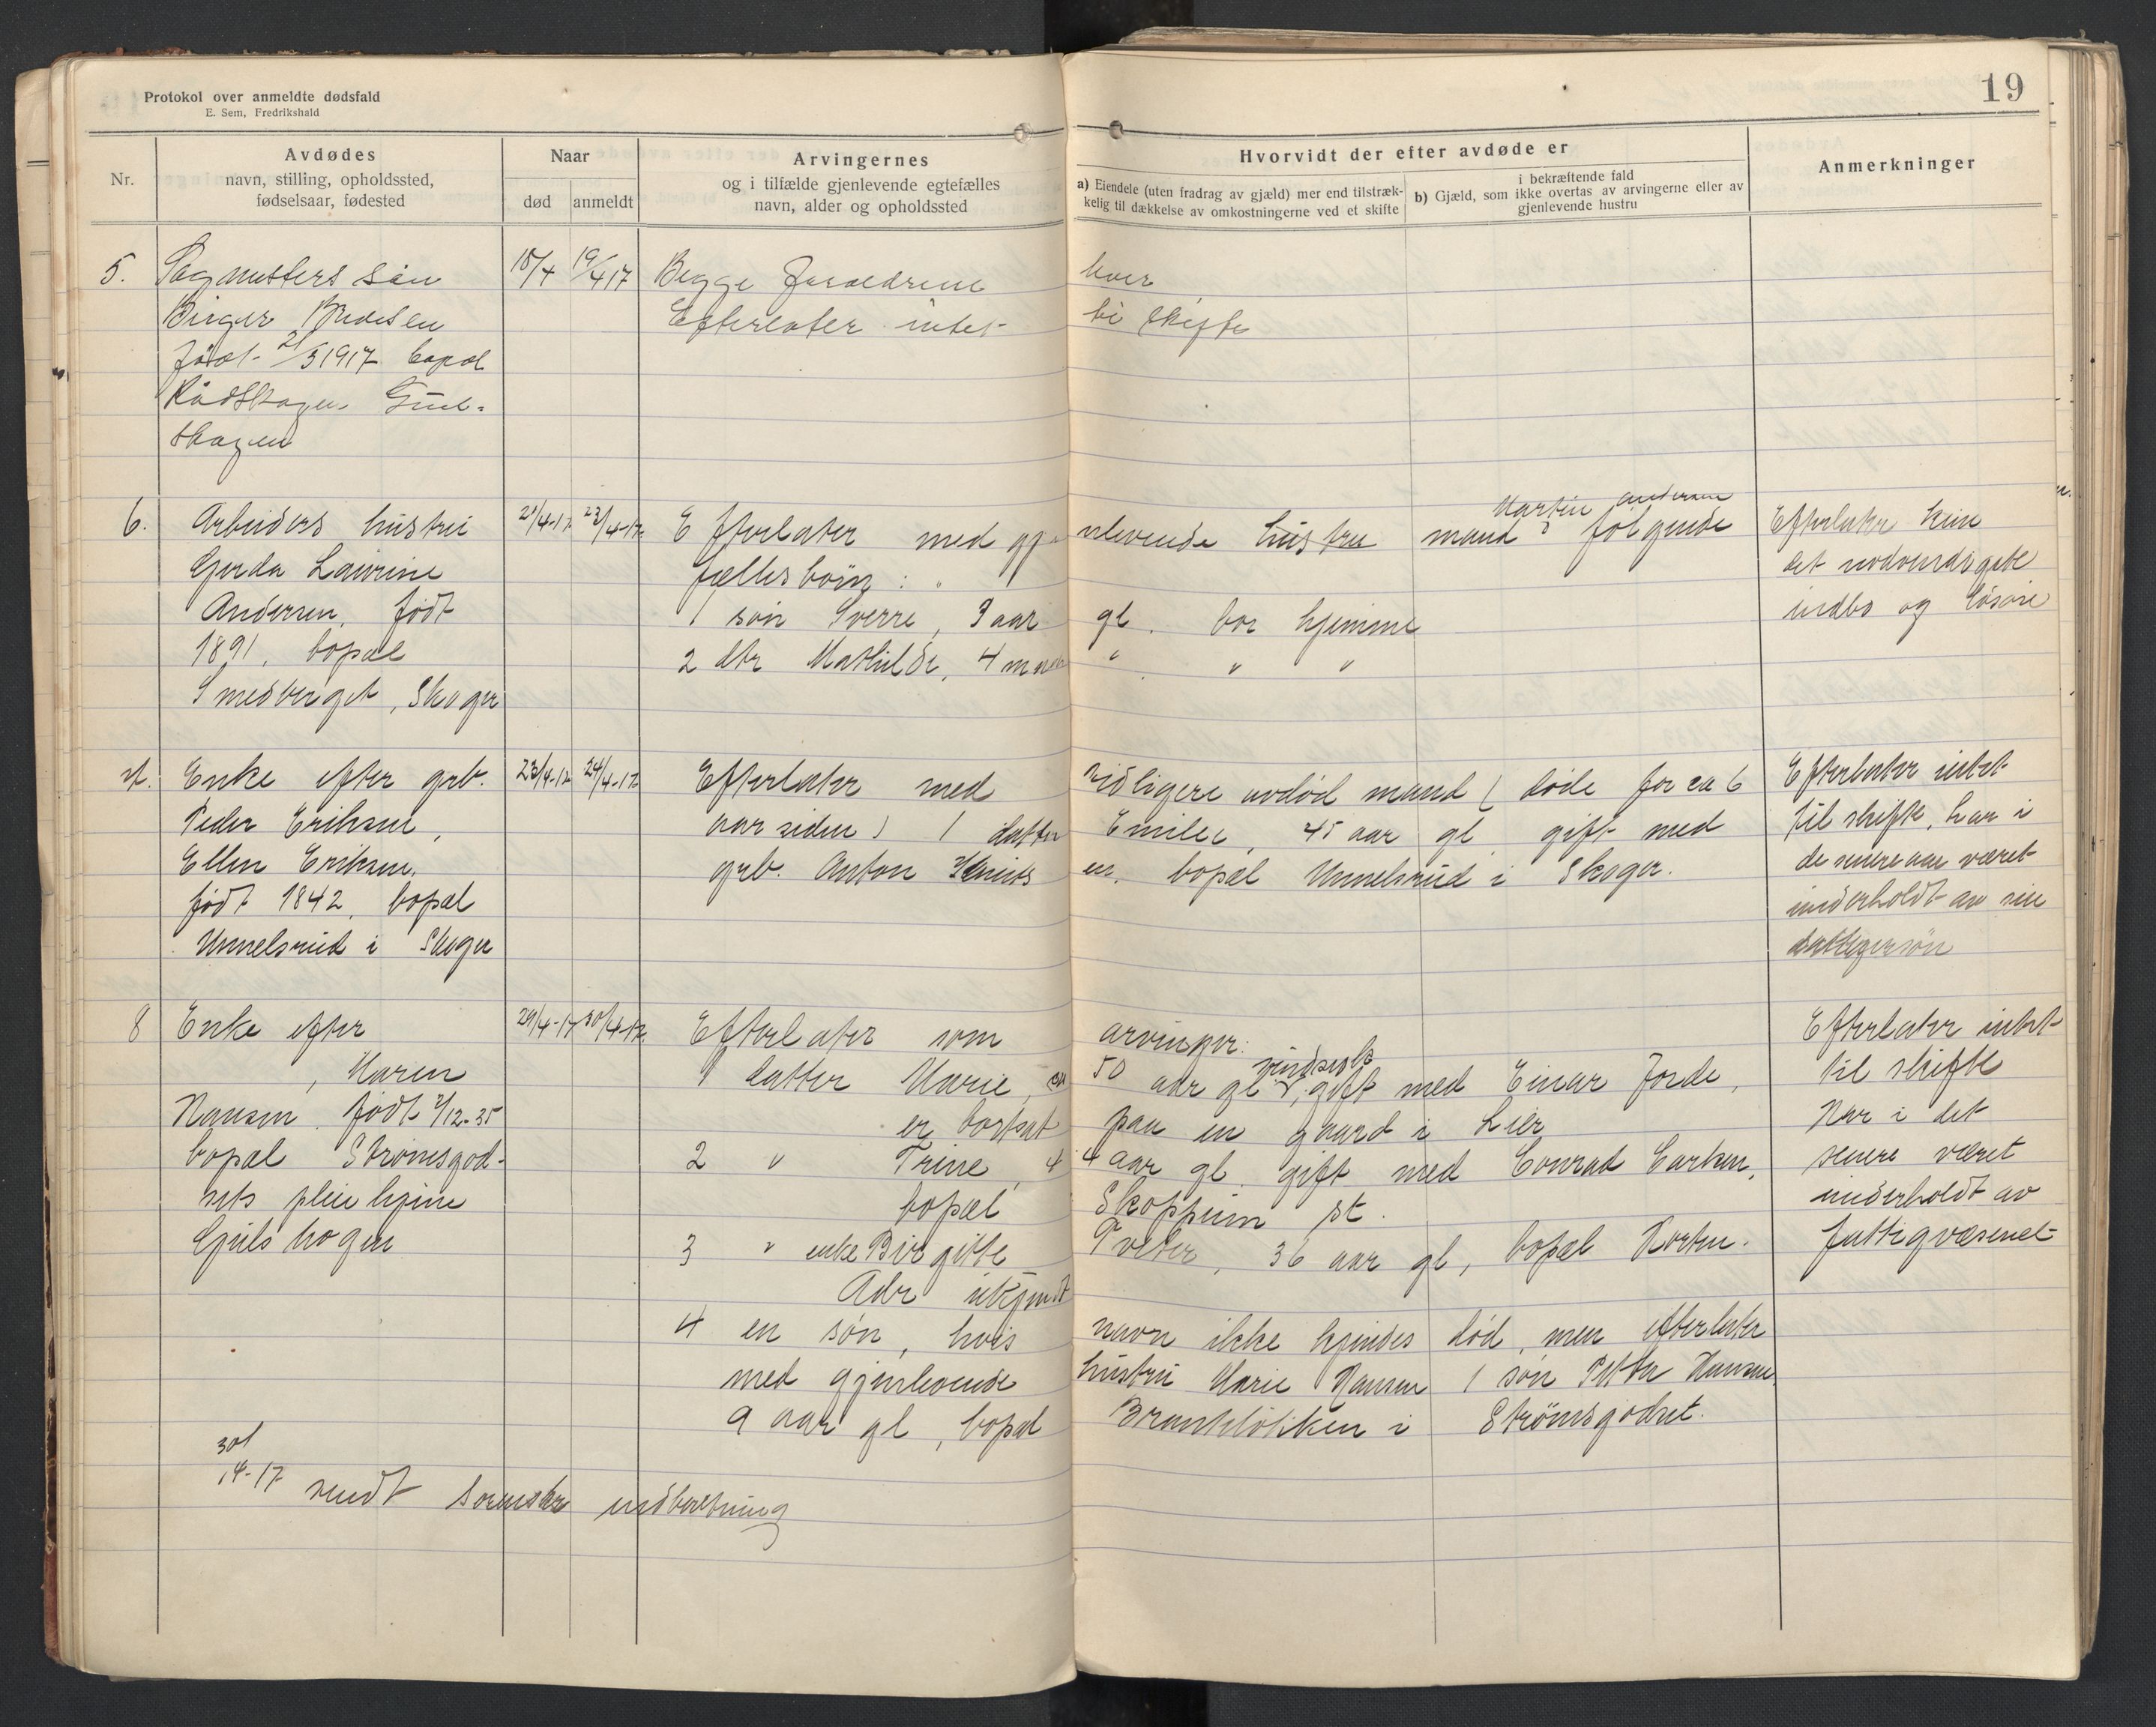 Protokol over anmeldte dødsfald
E. Sem, Fredrikshald
19
Nr.
Avdødes
navn, stilling, opholdssted,
fødselsaar, fødested
Naar
død
anmeldt
Arvingernes
og i tilfælde gjenlevende egtefælles
navn, alder og opholdssted
Hvorvidt der efter avdøde er
a) Eiendele (uten fradrag av gjæld) mer end tilstræk-
kelig til dækkelse av omkostningerne ved et skifte
i bekræftende fald
b) Gjæld, som ikke overtas av arvingerne eller av
gjenlevende hustru
Anmerkninger
5.
Sagmesters søn
Birger
født 2/3 1917 bopæl
skogen
18/4
19/4 17
Begge Foreldrene
Efterlater intet
skifte
6.
Arbeiders hustru
Gerda Laurine
Andersen, født
1891, bopæl
Smedberget, Skoger
21/4-17
23/4-17
Efterlater med gjenlevende hustru mand Martin Andersen følgende
fællesbørn:
1 søn Sverre, 3 aar gl. bor hjemme
2 dtr Mathilde, 4 mndr " " "
Efterlater kun
det nødvendigste
indbo og løsøre
7.
Enke efter grb.
Peder Eriksen,
Ellen Eriksen,
født 1842, bopæl
Unnelsrud i Skoger
23/4-17
24/4-17
Efterlater med tidligere avdød mand (døde for ca 6
aar siden) 1 datter Emilie, 45 aar gl gift med
grb. Anton Knudsen, bopæl Unnelsrud i Skoger.
Efterlater intet
til skifte, har i
de senere aar været
underholdt av sin
dattersøn
8
Enke efter
, Maren
Hansen født 2/12-35
bopæl Strømsgod-
sets pleiehjem
Gulskogen
29/4-17
30/4-17
Efterlater som arvinger:
1 datter Marie, ca 50 aar gl sindssyk, gift med Einar Forde,
er bortsat paa en gaard i Lier
2 " Trine, 44 aar gl. gift med Conrad Carlsen,
bopæl Skoppum st.
3 " enke Birgitte Tveter, 36 aar gl, bopæl Horten.
Adr ukjendt
4 en søn, hvis navn ikke kjendes død, men efterlater
med gjenlevende hustru Marie Hansen 1 søn Petter Hansen
9 aar gl, bopæl i Strømsgodset.
Efterlater intet
til skifte
Har i det
senere været
underholdt av
fattigvæsenet
30/4-17 sendt sorenskr indberetning